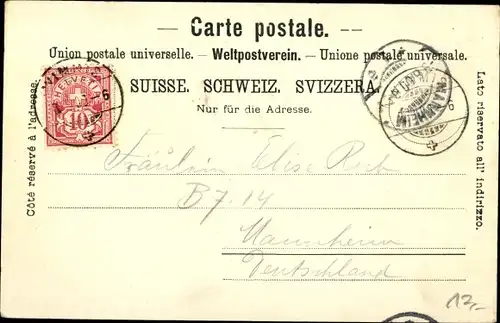 Carte postale.
Union postale universelle. – Weltpostverein. – Unione postale universale.
SUISSE. SCHWEIZ. SVIZZERA.
Nur für die Adresse.
Côté réservé à l'adresse.
Lato riservato all' indirizzo.
HELVETIA
10
MANNHEIM
Fräulein Elise
B 7. 14
Mannheim
Deutschland
12,-